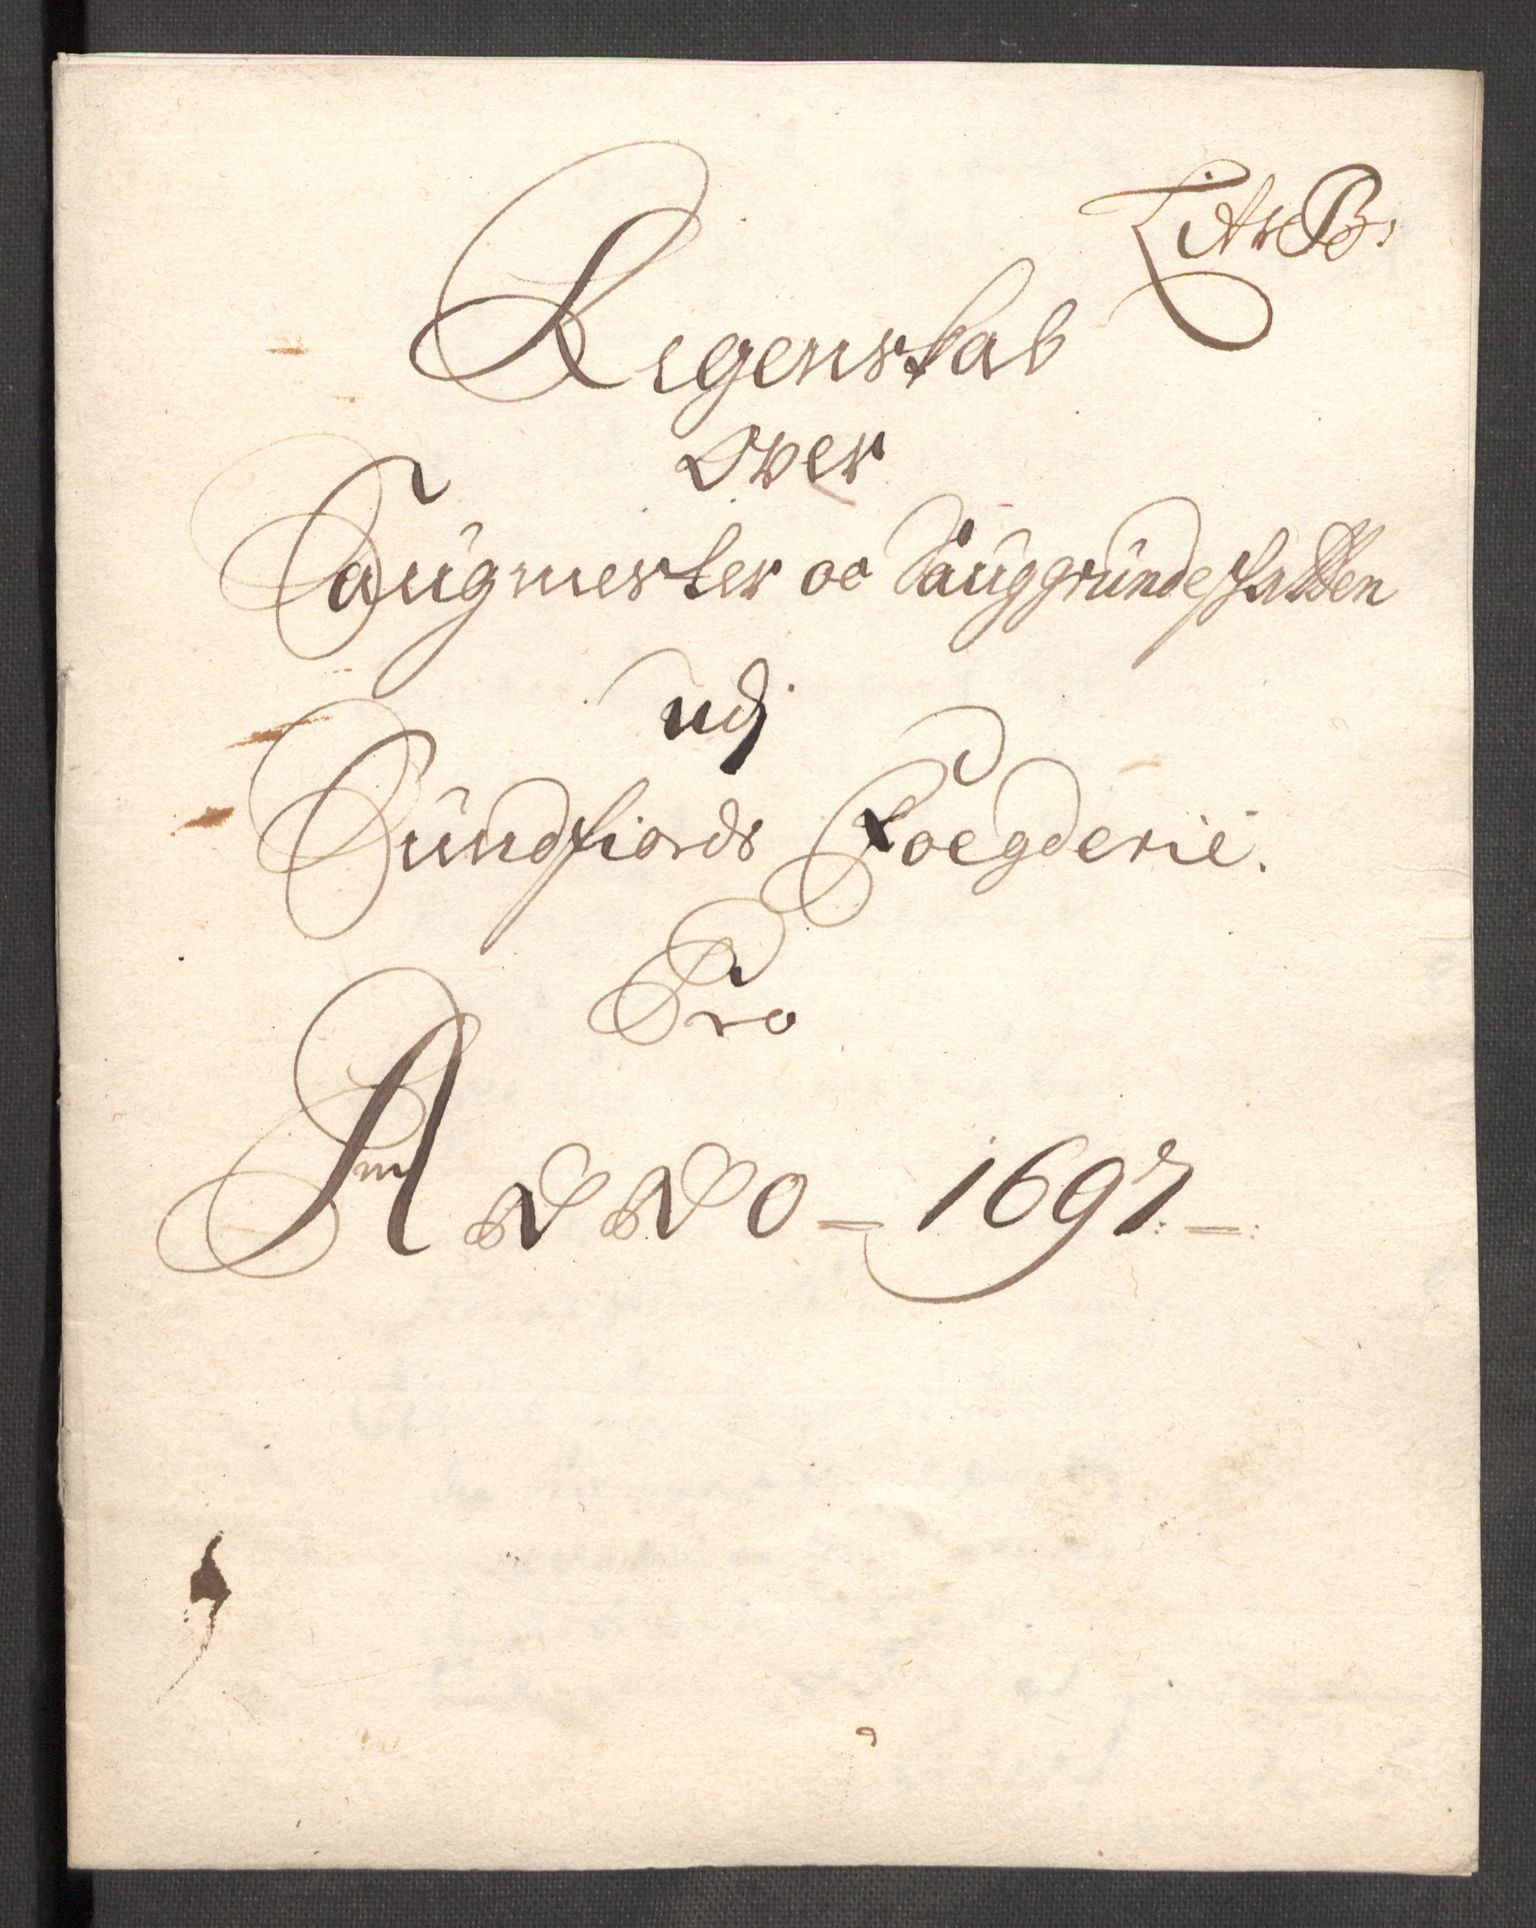 Litr B.
Regenskab
Over
Saugmester oc Sauggrundeskatten
udj
Sundfiords Foegderie.
Pro
ANNO - 1697 -